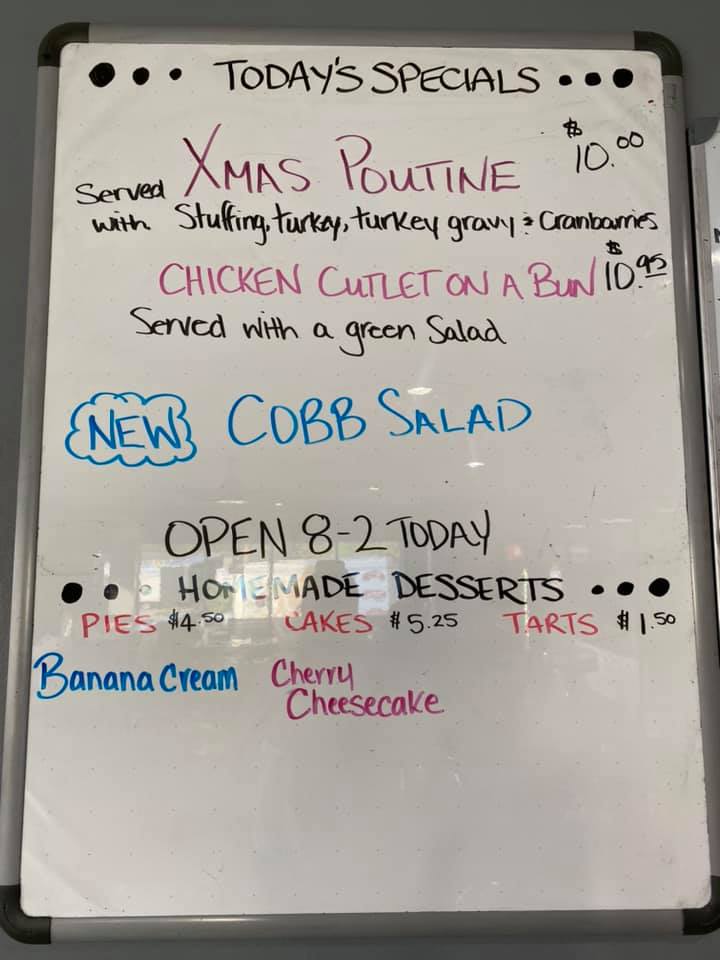 TODAY'S SPECIALS
XMAS POUTINE $10.00
Served with Stuffing, turkey, turkey gravy & Cranbarries
CHICKEN CUTLET ON A BUN $10.95
Served with a green Salad
NEW COBB SALAD
OPEN 8-2 TODAY
HOMEMADE DESSERTS
PIES $4.50 CAKES $5.25 TARTS $1.50
Banana Cream Cherry
Cheesecake